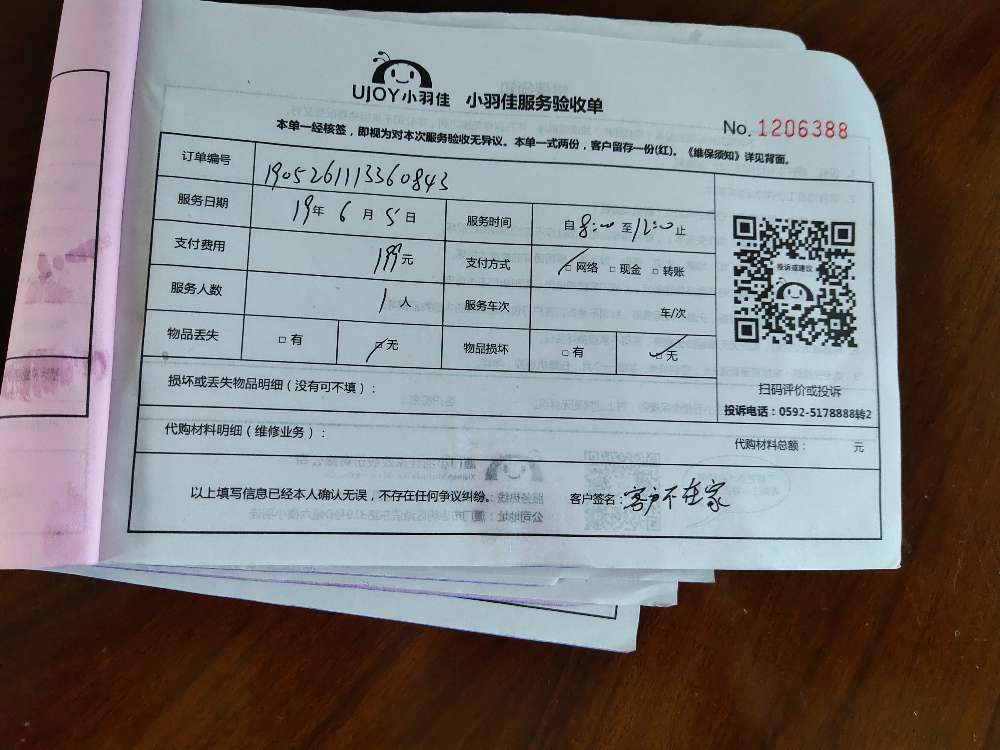 UJOY小羽佳 小羽佳服务验收单
No. 1206388
本单一经核签，即视为对本次服务验收无异议。本单一式两份，客户留存一份(红)。《维保须知》详见背面。
订单编号 190526111336 0843
服务日期 19年 6月 5日 服务时间 自 8:00 至 12:00 止
支付费用 199元 支付方式 □网络 □现金 □转账
服务人数 1人 服务车次 车/次
物品丢失 □有 □无 物品损坏 □有 □无
投诉或建议
扫码评价或投诉
投诉电话：0592-5178888转2
损坏或丢失物品明细（没有可不填）：
代购材料明细（维修业务）： 代购材料总额： 元
以上填写信息已经本人确认无误，不存在任何争议纠纷。 客户签名：客户不在家